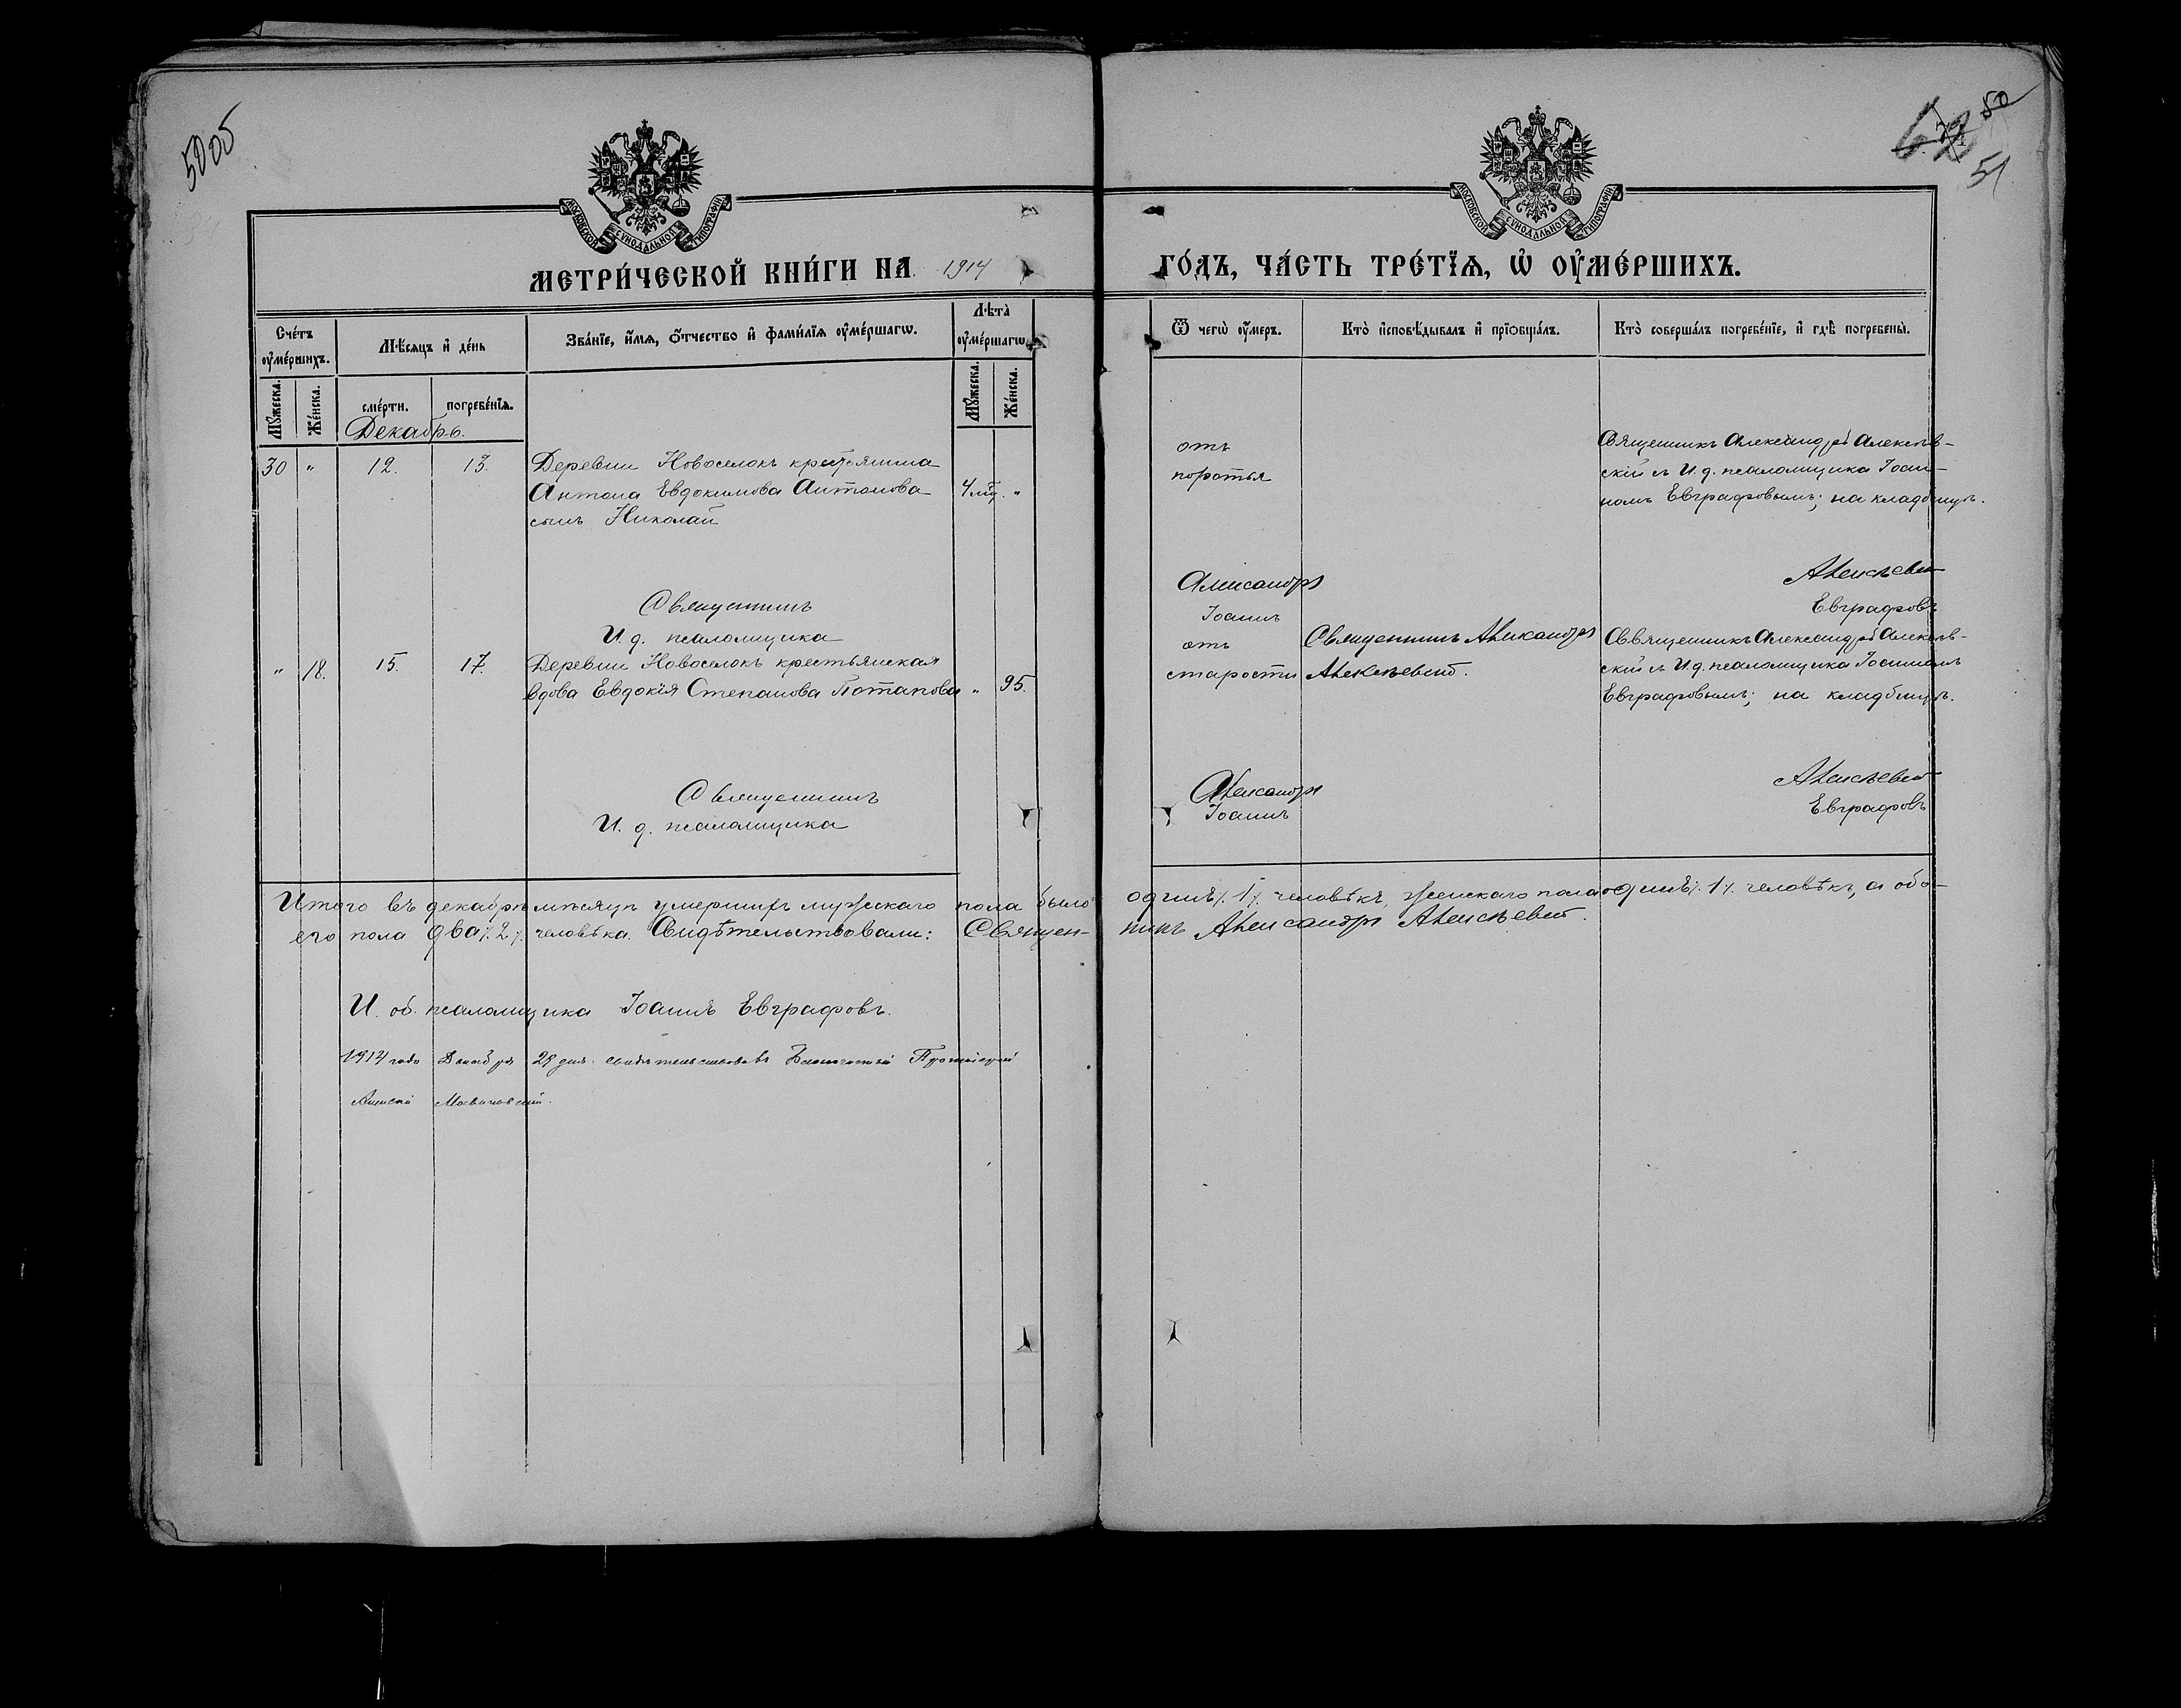 5005
62 50
51
МОСКОВСКОЙ СѴНОДАЛЬНОЙ ТИПОГРАФІИ
МОСКОВСКОЙ СѴНОДАЛЬНОЙ ТИПОГРАФІИ
МЕТРИ́ЧЕСКОЙ КНИ́ГИ НА 1914 ГО́ДЪ, ЧА́СТЬ ТРЕ́ТЇѦ, Ѡ҆ ОУ҆МЕ́РШИХЪ.
Сче́тъ оу҆ме́ршихъ.
Мꙋ́жеска.
Же́нска.
Мѣ́сяцъ и҆ де́нь
сме́рти.
погребе́нїѧ.
Зва́нїе, и҆́мѧ, ѻ҆́тчество и҆ фами́лїѧ оу҆ме́ршагѡ.
Лѣ́та оу҆ме́ршагѡ.
Мꙋ́жеска.
Же́нска.
Ѿ чегѡ̀ оу҆́меръ.
Кто̀ и҆сповѣ́дывалъ и҆ прїѻбща́лъ.
Кто̀ соверша́лъ погребе́нїе, и҆ гдѣ̀ погребены̀.
Декабрь.
30 " 12. 13. Деревни Новоселокъ крестьянина
Антона Евдокимова Антонова
сынъ Николай
"
отъ
Священникъ Александръ Алексѣев-
скій съ И. д. псаломщика Іоан-
номъ Евграфовымъ; на кладбищѣ.
Священникъ Александръ Алексѣевскій
И. д. псаломщика Іоаннъ Евграфовъ
" 18. 15. 17. Деревни Новоселокъ крестьянская
вдова Евдокія Степанова Потапова " 95.
отъ
старости
Священникъ Александръ
Алексѣевскій.
Священникъ Александръ Алексѣев-
скій съ И. д. псаломщика Іоанномъ
Евграфовымъ; на кладбищѣ.
Священникъ Александръ Алексѣевскій
И. д. псаломщика Іоаннъ Евграфовъ
Итого въ декабрѣ мѣсяцѣ умершихъ мужескаго пола было одинъ ⁒ 1 ⁒ человѣкъ, женскаго пола одинъ ⁒ 1 ⁒ человѣкъ, а обо-
его пола два ⁒ 2 ⁒ человѣка. Свидѣтельствовали: Священ- никъ Александръ Алексѣевскій.
И. об. псаломщика Іоаннъ Евграфовъ.
1914 года Декабря 28 дня свидѣтельствовалъ Протоіерей
Алексѣй